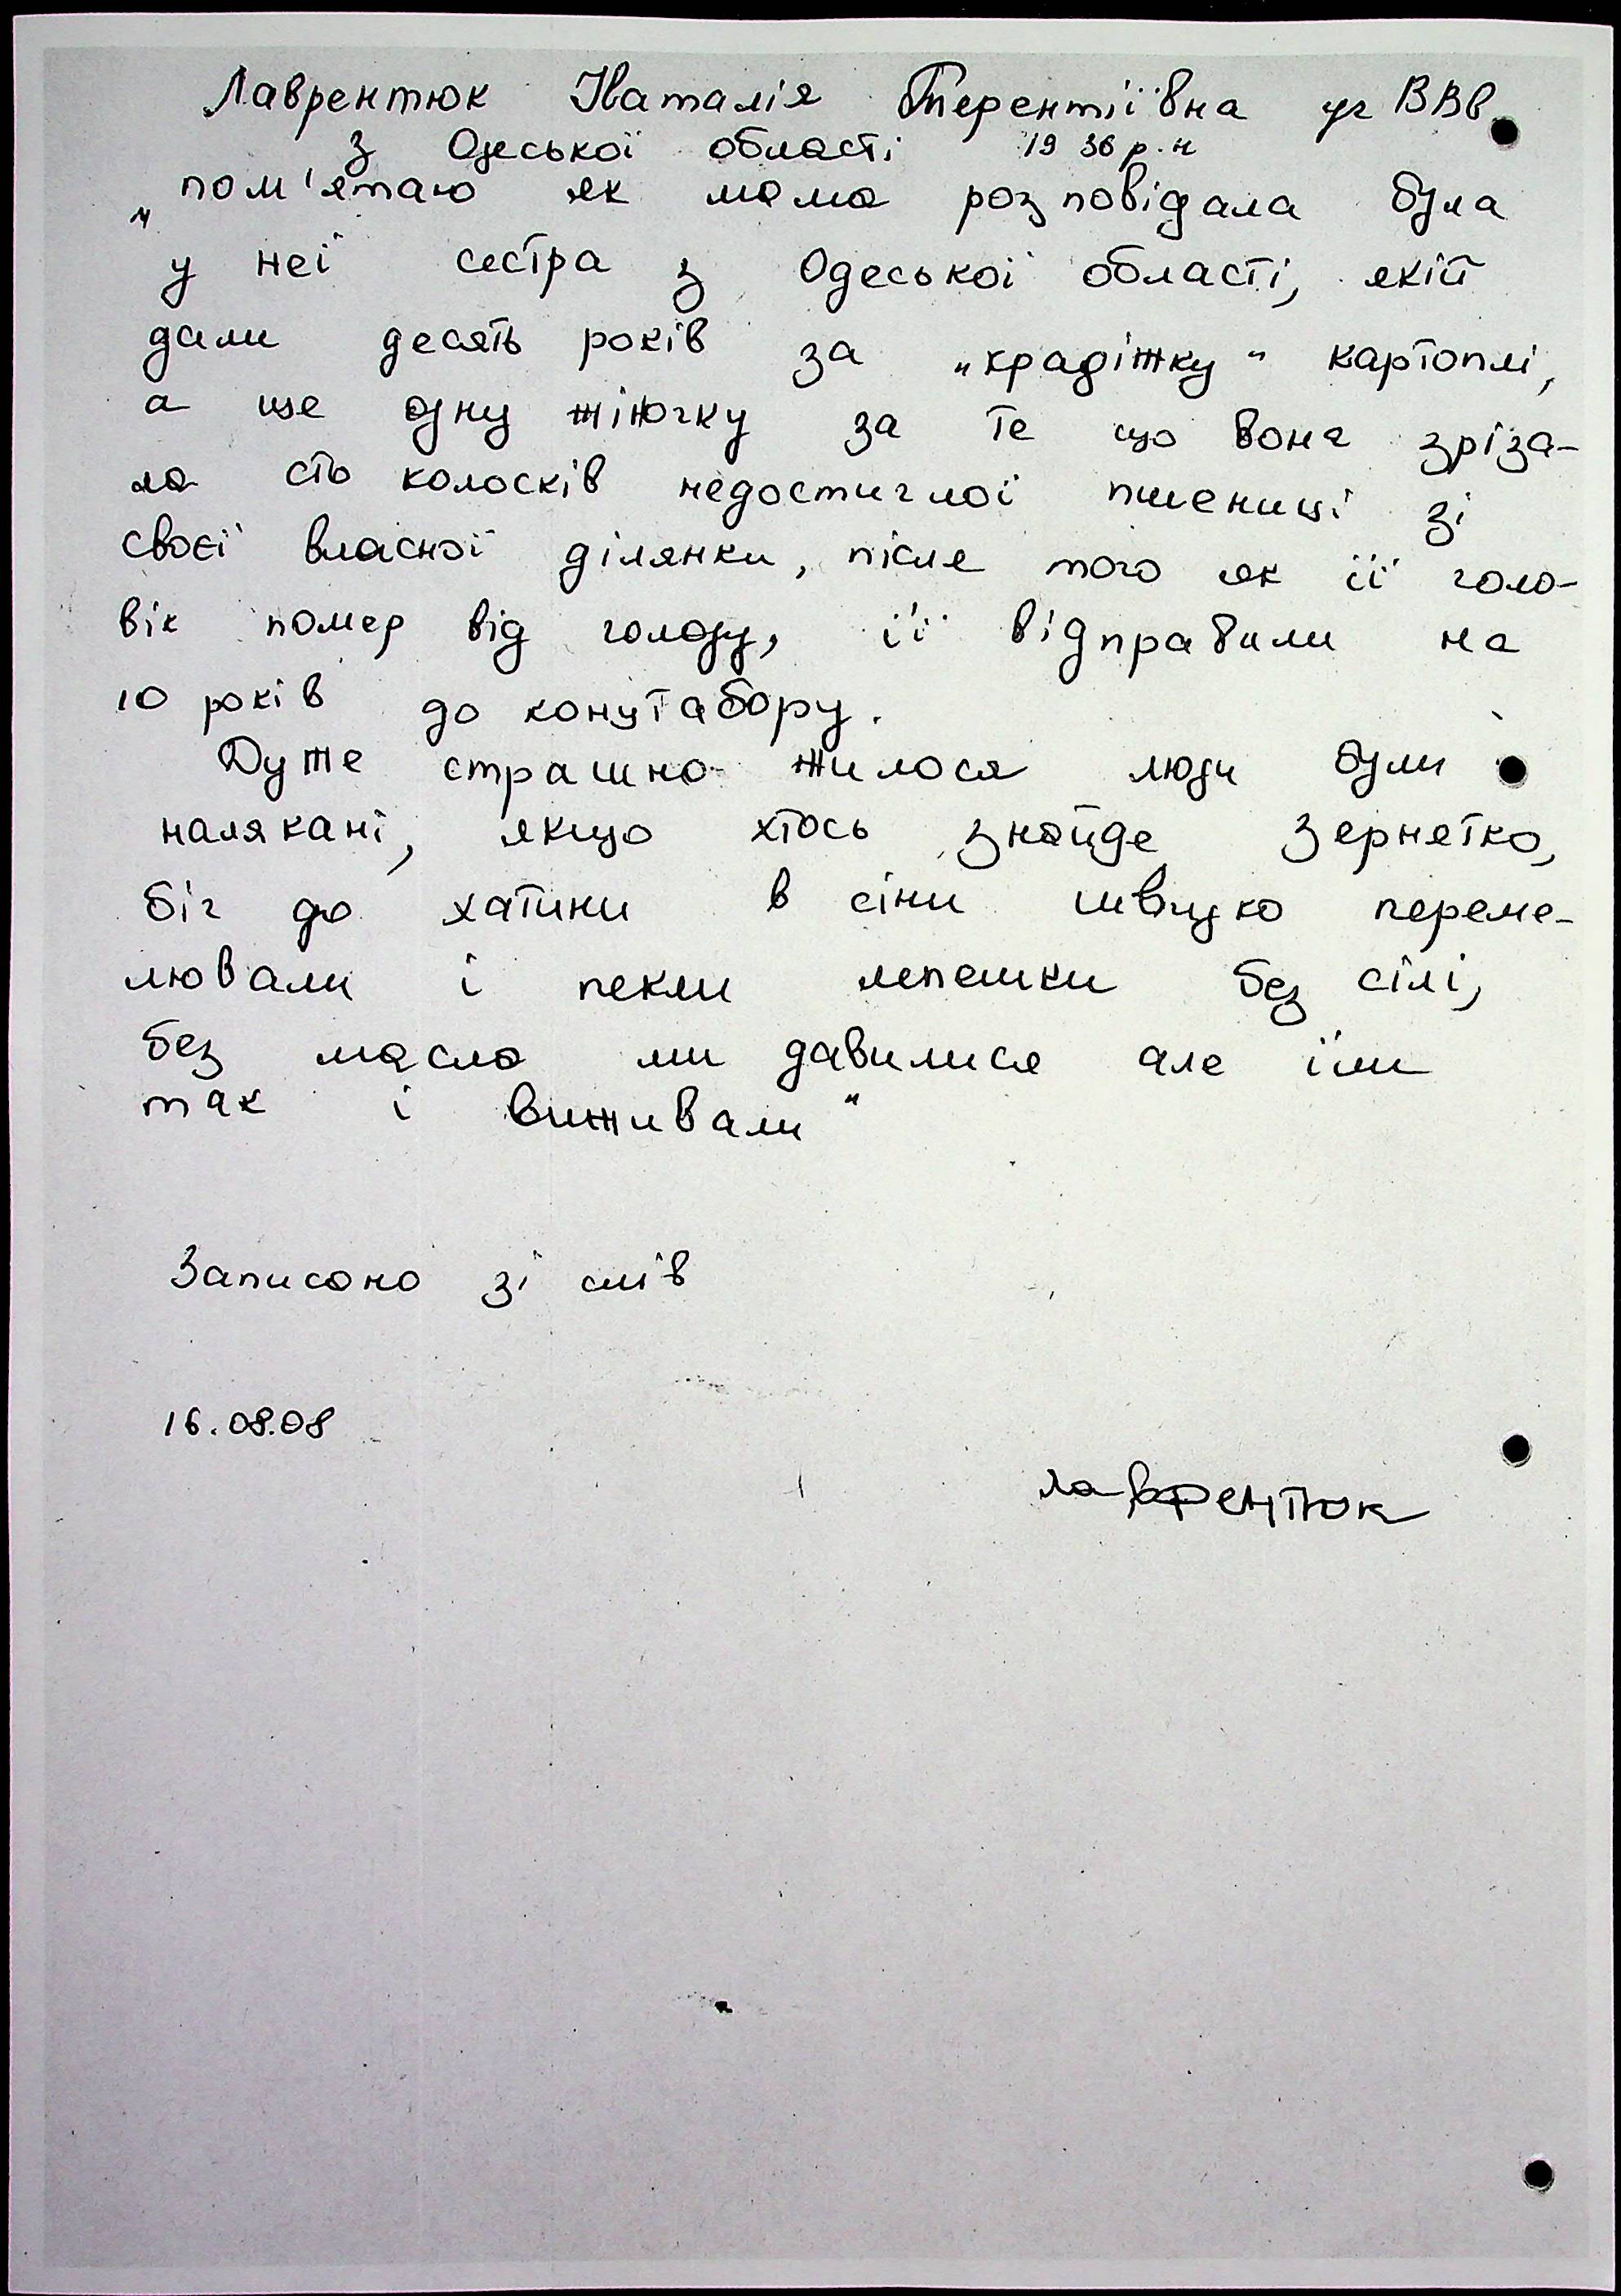 Лаврентюк Наталія Терентіївна уч ВВв
з Одеської області 1936 р.н
„пом'ятаю як мама розповідала була
у неї сестра з Одеської області, якій
дали десять років за „крадіжку" картоплі,
а ще одну жіночку за те що вона зріза-
ла сто колосків недостиглої пшениці зі
своєї власної ділянки, після того як її чоло-
вік помер від голоду, її відправили на
10 років до концтабору.
Дуже страшно жилося люди були
налякані, якщо хтось знайде зернятко,
біг до хатини в сіни швидко переме-
лювали і пекли лепешки без сілі,
без масла ми давилися але їли
так і виживали"
Записоно зі слів
16.08.08
Лаврентюк